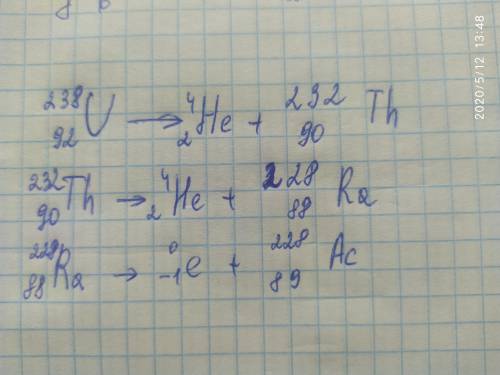 ²³⁸₉₂U → ⁴₂He + ²³²₉₀Th
²³²₉₀Th → ⁴₂He + ²²⁸₈₈Ra
²²⁸₈₈Ra → ⁰₋₁e + ²²⁸₈₉Ac
2020/5/12 13:48